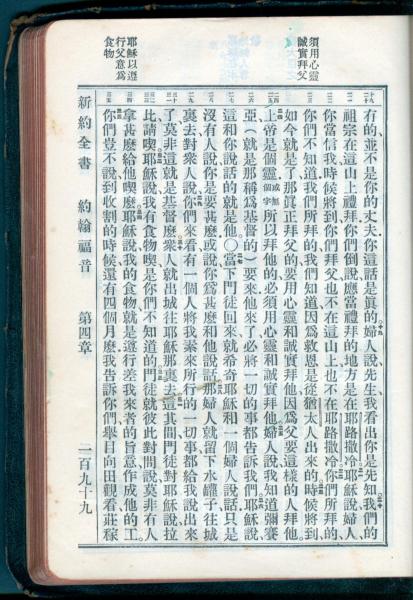 須用心靈
誠實拜父
耶穌以遵
行父意爲
食物
有的並不是你的丈夫你這話是眞的婦人說先生我看出你是先知我們的
祖宗在這山上禮拜你們倒說應當禮拜的地方是在耶路撒冷耶穌說婦人
你當信我時候將到你們拜父也不在這山上也不在耶路撒冷你們所拜的
你們不知道我們所拜的我們知道因爲救恩是從猶太人出來的時候將到
如今就是了那眞正拜父的要用心靈和誠實拜他因爲父要這樣的人拜他
上帝是個靈所以拜他的必須用心靈和誠實拜他婦人說我知道彌賽
亞(就是那稱爲基督的)要來他來了必將一切的事都告訴我們耶穌說
這和你說話的就是他○當下門徒回來就希奇耶穌和一個婦人說話只是
沒有人說你是要甚麽或說你爲甚麽和他說話那婦人就留下水罐子往城
裏去對衆人說你們來看有一個人將我素來所行的一切事都給我說出來
了莫非這就是基督麽衆人就出城往耶穌那裏去這其間門徒對耶穌說拉
比請喫耶穌說我有食物喫是你們不知道的門徒就彼此對問說莫非有人
拿甚麽給他喫麽耶穌說我的食物就是遵行差我來者的旨意作成他的工
你們豈不說到收割的時候還有四個月麽我告訴你們舉目向田觀看莊稼
新約全書 約翰福音 第四章 二百九十九